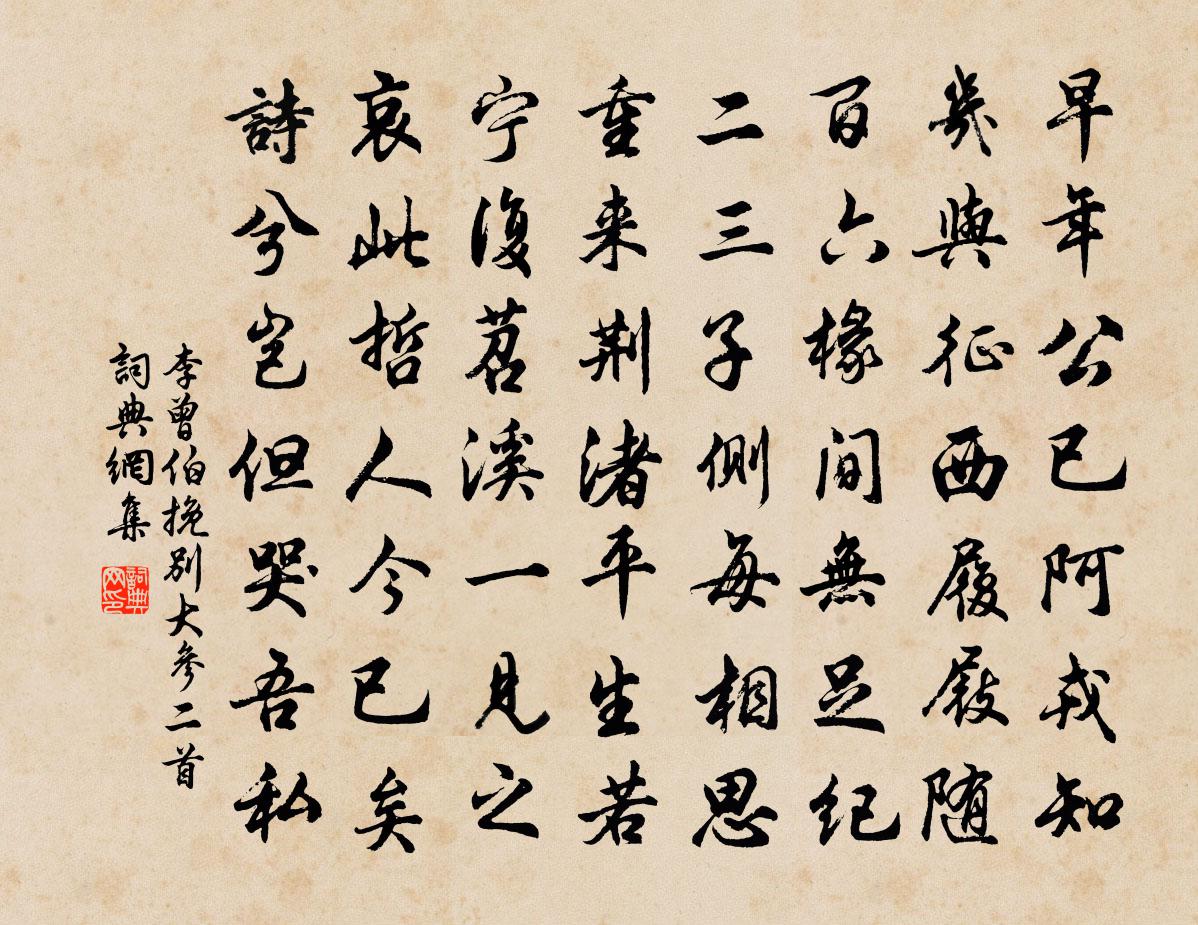 早年公已阿戎知
幾與征西履屐随
百六椽间無足纪
二三子侧每相思
重来荆渚平生若
宁復苕溪一见之
哀此哲人今已矣
詩兮岂但哭吾私
李曾伯挽别大參二首
詞典網集
詞典网印